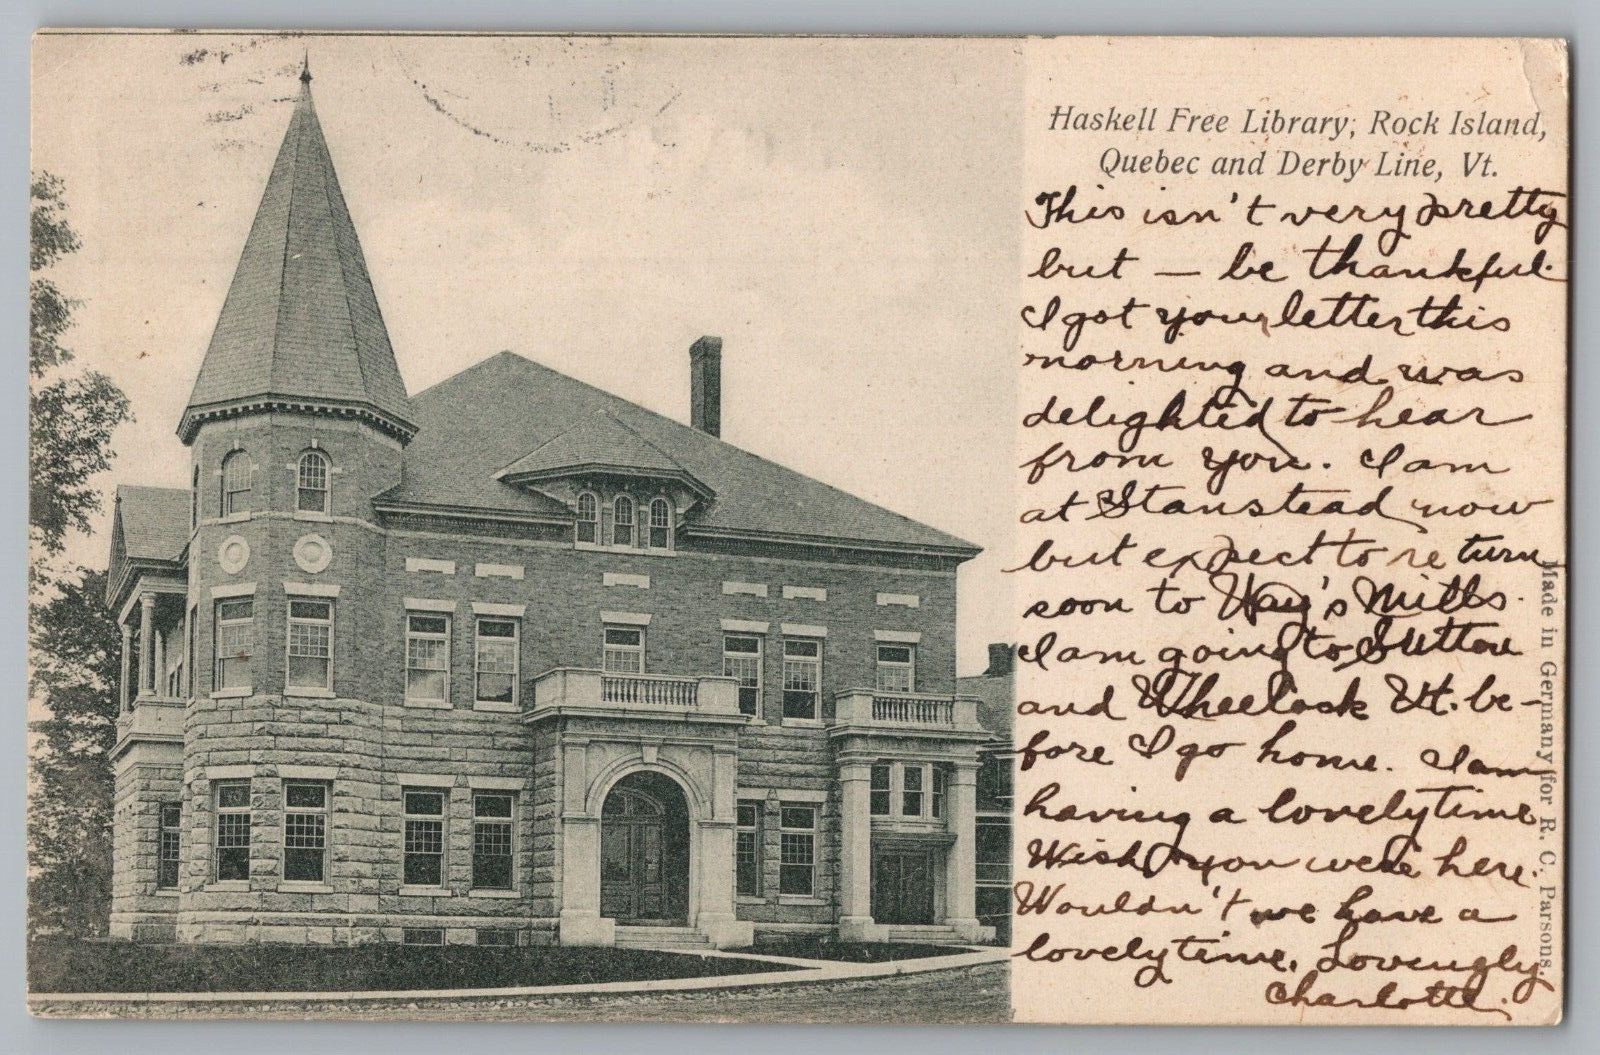 Haskell Free Library; Rock Island,
Quebec and Derby Line, Vt.
This isn't very pretty
but — be thankful.
I got your letter this
morning and was
delighted to hear
from you. I am
at Stanstead now
but expect to return
soon to Way's Mills.
I am going to Sutton
and Wheelock Vt. be-
fore I go home. I am
having a lovely time
Wish you were here.
Wouldn't we have a
lovely time. Lovingly
Charlotte.
Made in Germany for R. C. Parsons.